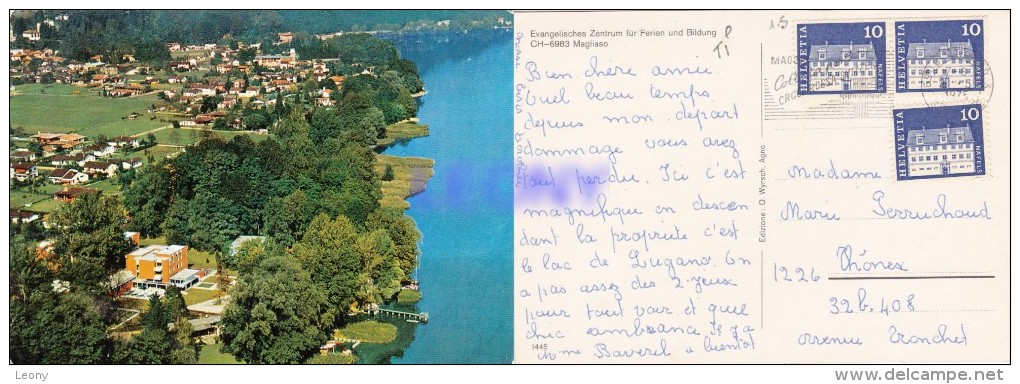 Evangelisches Zentrum für Ferien und Bildung
CH-6983 Magliaso
TI
Bien chère amie
Quel beau temps
depuis mon départ
dommage vous avez
tout perdu. Ici c'est
magnifique en descen
dant la propriété c'est
le lac de Lugano. On
a pas assez des 2 yeux
pour tout voir et quel
chic ambiance il y a
Mme Baverel a bientôt
1445
Edizione: O. Wyrsch, Agno
HELVETIA 10 NÄFELS
HELVETIA 10 NÄFELS
HELVETIA 10 NÄFELS
Madame
Marie Perruchoud
1226 Thônex
32b, 408
avenue Tronchet
Leony
www.delcampe.net